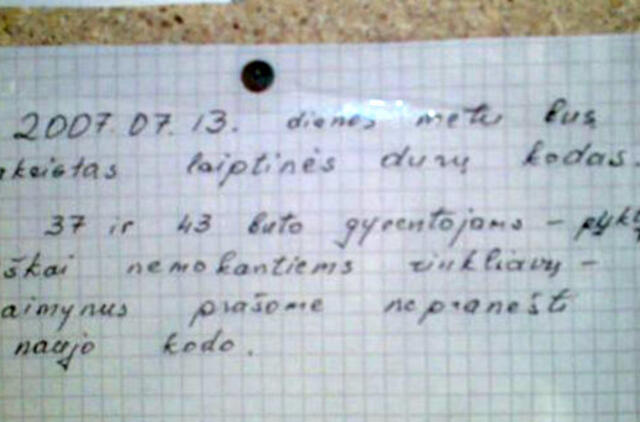 2007.07.13. dienos metu bus
akeistas laiptinės durų kodas.
37 ir 43 buto gyventojams – pykt
iškai nemokantiems rinkliavų –
aimynus prašome nepranešti
naujo kodo.